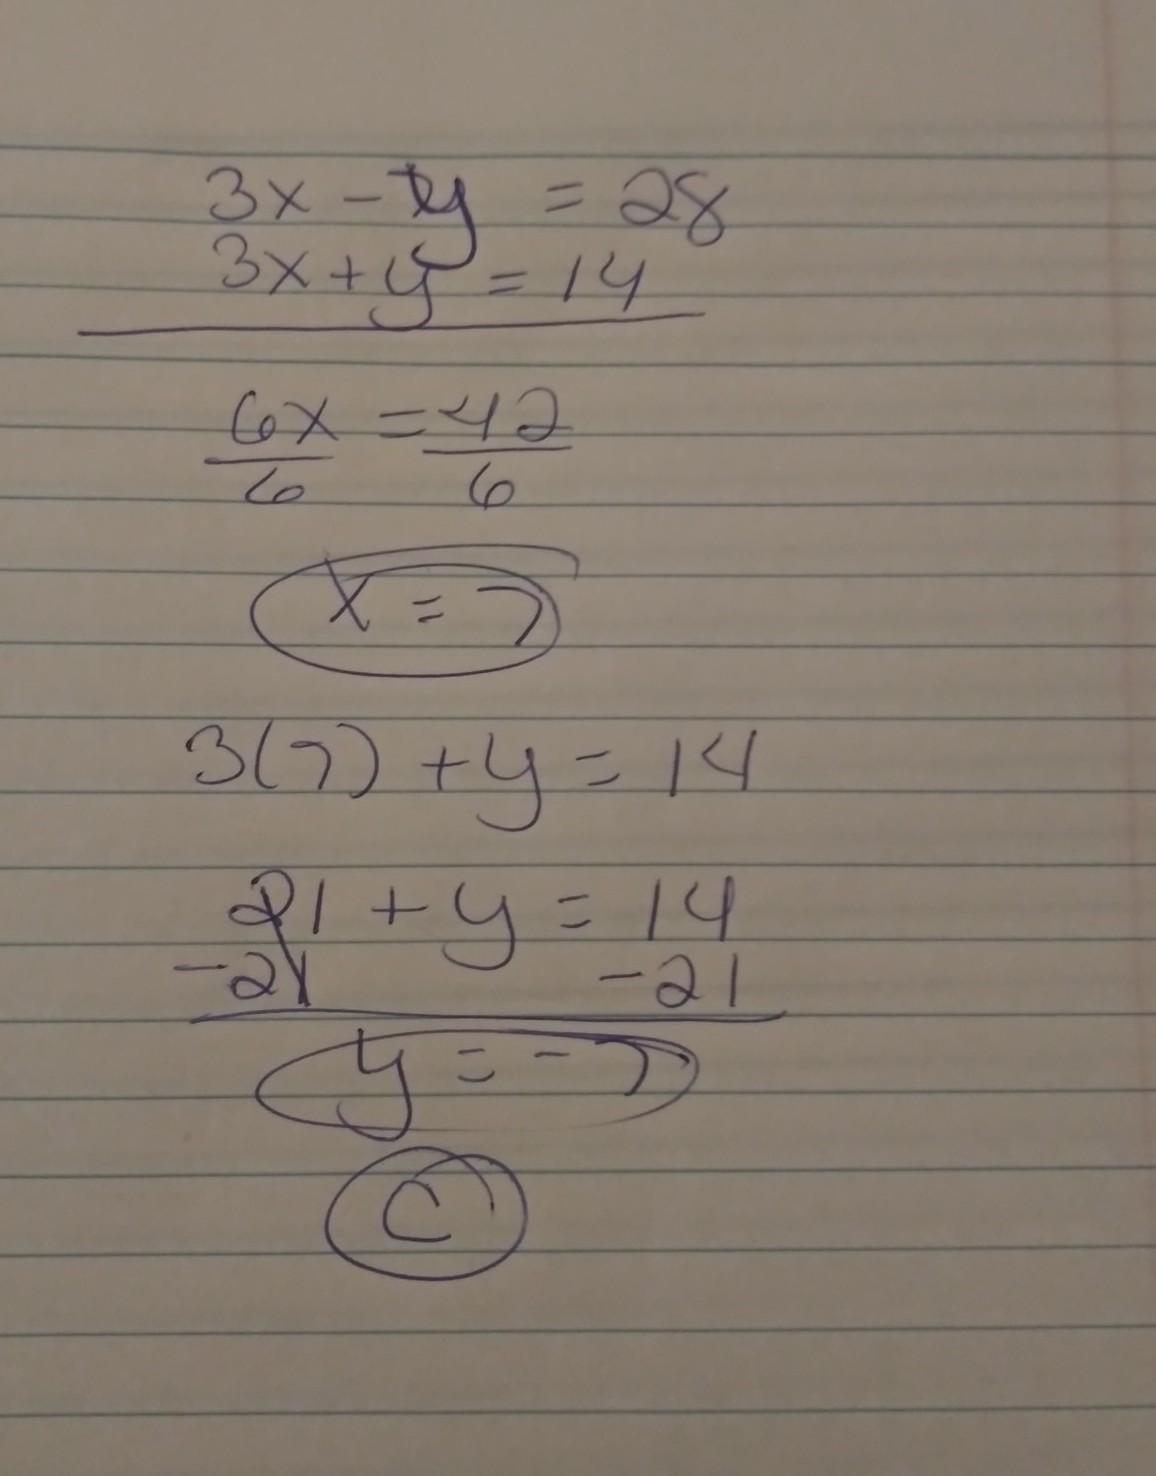 3x - y = 28
3x + y = 14
6x = 42
6 6
x = 7
3(7) + y = 14
21 + y = 14
-21 -21
y = -7
C